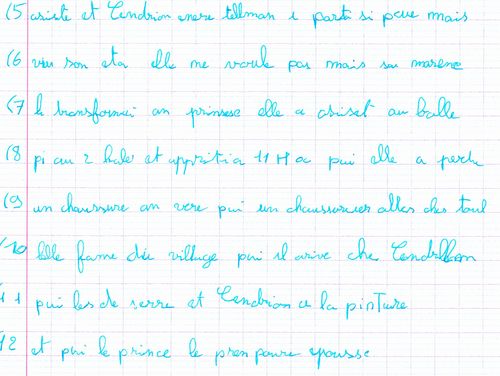 (5 ariete et Cendrion enere tellman e parti si peue mais
(6 veu son eta elle ne voule pas mais sa marene
(7 la transformai an prinsese elle a asiset au balle
(8 pi au 2 bale et appritia 11 H a pui elle a perdu
(9 un chaussure an vere pui un chaussourier alla ches tout
(10 lle fame du village pui il arive che Cendrillon
11 pui les de serre et Cendrion a la pinTure
12 et pui le prince le pren poure epousse